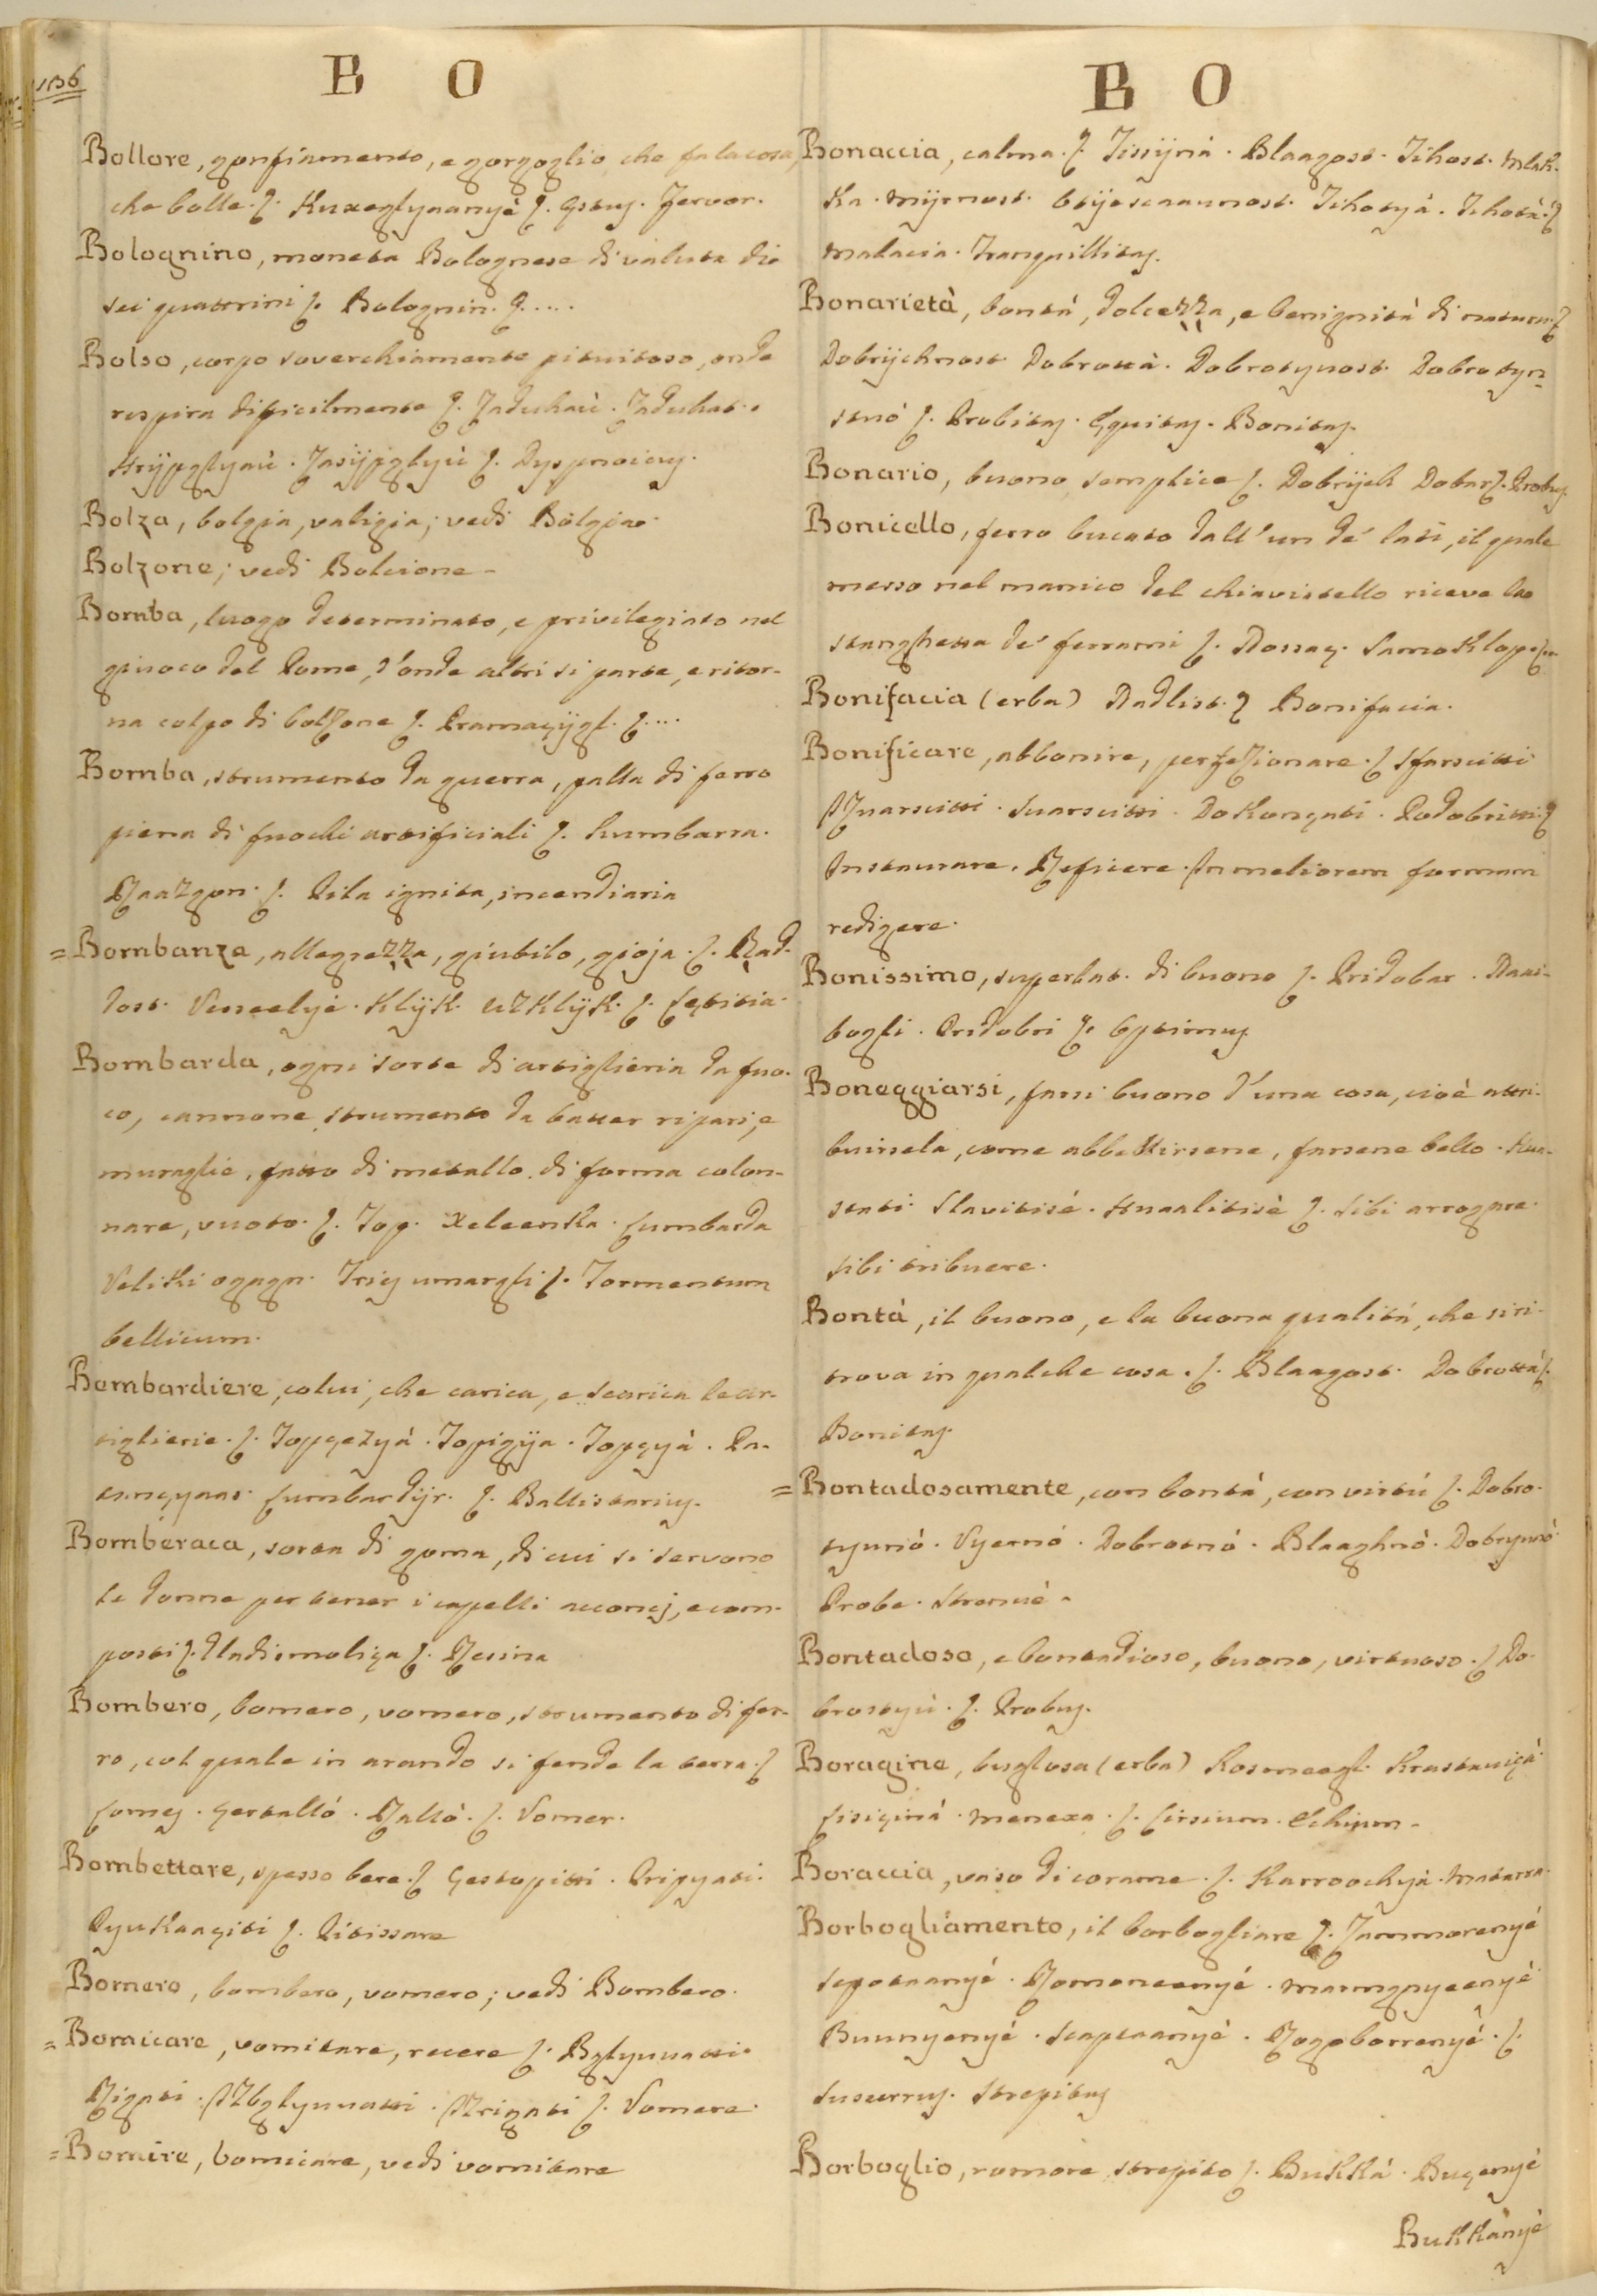 136
B O
Bollore, gonfiamento, e gorgoglio che fa la cosa,
che bolle. ſ. Kuxeglyaanyè ſ. Ęstus. Fervor.
Bolognino, moneta Bolognese di valuta di
sei quattrini ſ. Bolognin. ſ. ....
Bolso, corpo soverchiamente pituitoso, onde
respira dificilmente ſ. Zaduhaù. Zaduhat.
Sijpglyaù. Zasijpglyù ſ. Dyspnoicus.
Bolza, bolgia, valigia; vedi Bolgia.
Bolzone; vedi Bolcione
Bomba, luogo determinato, e privilegiato nel
giuoco del Pome, d'onde altri si parte, e ritor-
na colpo di bolzone ſ. ſ....
Bomba, strumento da guerra, palla di ferro
piena di fuochi artificiali ſ. Kumbarra.
Raazgon. ſ. Pila ignita, incendiaria
= Bombanza, allegrezza, giubilo, gioja. ſ. Rad-
dost. Vesseelyé. Klijk. uzklijk. ſ. Lętitia.
Bombarda, ogni sorte di artiglieria da fuo-
co, cannone strumento da batter ripari, e
muraglie, fatto di metallo di forma colon-
nare, vuoto. ſ. Top. xeleenka. Lumbarda
Veliki ogagn. Tries umargli ſ. Tormentum
bellicum.
Bombardiere, colui, che carica, e scarica le ar-
tiglierie. ſ. Topçezyá. Topigija. Topçyá. Pa-
Lumbardijr. ſ. Ballistarius.
Bomberaca, sorta di goma, di cui si servono
le donne per tener i capelli acconcj, e com-
posti ſ. Uladismoliça ſ. Resina
Bombero, bomero, vomero, strumento di fer-
ro, col quale in arando si fende la terra. ſ
Lemes. çertalló. Rallò. ſ. Vomer.
Bombettare, spesso bere. ſ çestopitti. Pripyati.
Pyukaaçiti ſ. Pitissare
Bomero, bombero, vomero; vedi Bombero.
= Bomicare, vomitare, recere ſ. Bglyuuatti.
Rigati. Izbglyuuatti. Izrigati ſ. Vomere.
= Bomire, bomicare, vedi vomitare
B O
Bonaccia, calma. ſ. Tissijna. Blaagost. Tihost. mlak-
ka. mijrnost. Tihotyà. Tihotà. ſ
malacia. Tranquillitas.
Bonarietà, bontá, dolcezza, e benignitá di natura. ſ
Dobrijchnost Dobrottà. Dobrotyuost. Dobrotyu-
stuó ſ. Probitas. Ęquitas. Bonitas.
Bonario, buono semplice ſ. Dobrijch Dobar ſ. Probus
Bonicello, ferro bucato dall'un de' lati, il quale
messo nel manico del chiavistello riceve la
stanghetta de' ferrami ſ. Nossaç.
Bonifacia (erba) Nadlist. ſ Bonifacia.
Bonificare, abbonire, perfezionare. ſ Sfarscitti
Izuarscitti. Suarscitti. Dokonçati. Podobritti. ſ
Instaurare. Reficere. In meliorem formam
redigere.
Bonissimo, superlat. di buono ſ. Pridobar. Naai-
bogli. Pridobri ſ. Optimus
Boneggiarsi, farsi buono d'una cosa, cioè attri-
buirsela, come abbellirsene, farsene bello. Hua-
stati. Slavitisé. Huaalitisè ſ. Sibi arrogare.
sibi tribuere.
Bontà, il buono, e la buona qualitá, che si ri-
trova in qualche cosa. ſ. Blaagost. Dobrottá ſ.
Bonitas.
= Bontadosamente, con bontá, con virtú ſ. Dobro-
tyunó. Vyernó. Dobrotnó. Blaaghnò. Dobryunó
Probe. Strenuè.
Bontadoso, e bontadioso, buono, virtuoso. ſ Do-
brostyù. ſ. Probus.
Boragine, buglosa (erba) Kosmeegl. Krastauiçá
Lisiçiná. menexa. ſ. Cirsium. Echium.
Boraccia, vaso di corame. ſ. Karroochyà. matarra.
Borbogliamento, il borbogliare ſ. Zammorenyé
Sepotaanyé. Romoneenyé. marmgnyeenyè
Buunyenyé. Sciaptaanyè. Rogoborrenyé. ſ.
Susurrus. Strepitus
Borboglio, romore strepito ſ. Bukká. Buçenyé
Bukkànyè